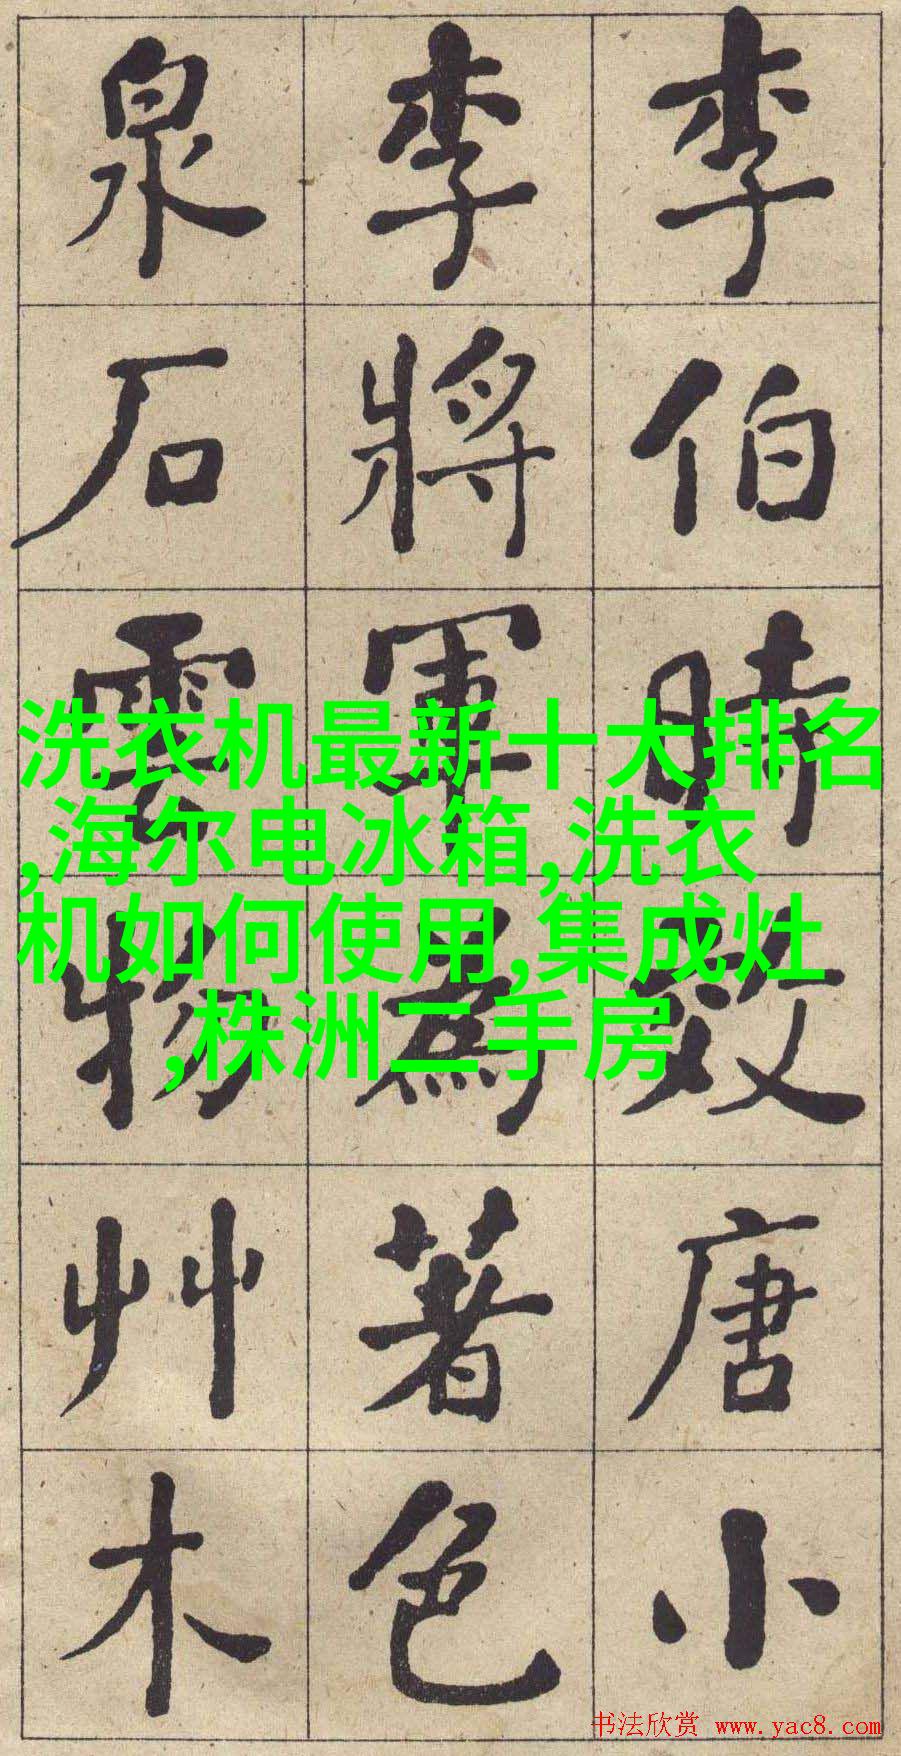 李伯時效唐小
李將軍為著色
泉石雲物艸木
洗衣机最新十大排名
,海尔电冰箱,洗衣
机如何使用,集成灶
,株洲二手房
书法欣赏 www.yac8.com